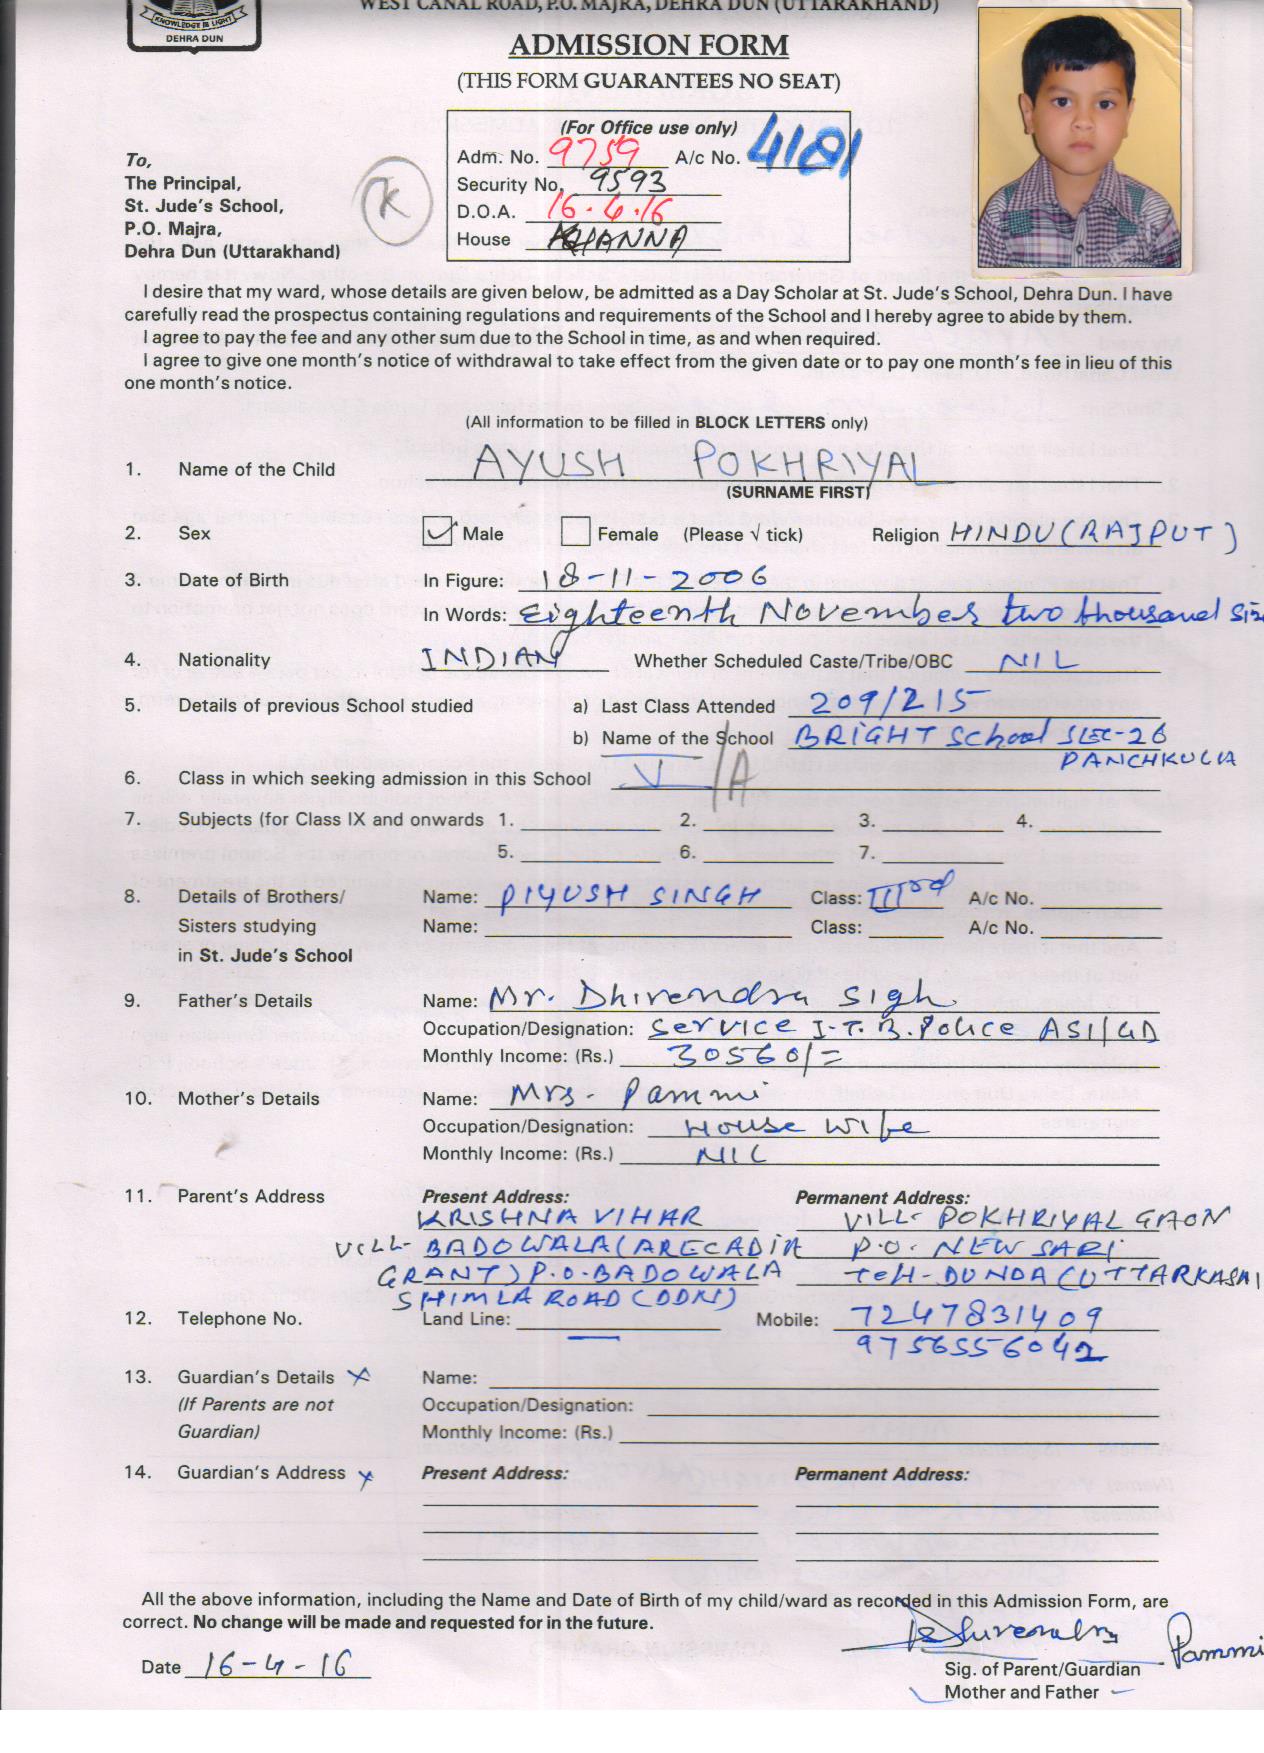 WEST CANAL ROAD, P.O. MAJRA, DEHRA DUN (UTTARAKHAND)
KNOWLEDGE IS LIGHT
DEHRA DUN
ADMISSION FORM
(THIS FORM GUARANTEES NO SEAT)
(For Office use only)
Adm. No. 9759 A/c No. 4181
Security No. 9593
D.O.A. 16.4.16
House KHANNA
K
To,
The Principal,
St. Jude's School,
P.O. Majra,
Dehra Dun (Uttarakhand)
I desire that my ward, whose details are given below, be admitted as a Day Scholar at St. Jude's School, Dehra Dun. I have
carefully read the prospectus containing regulations and requirements of the School and I hereby agree to abide by them.
I agree to pay the fee and any other sum due to the School in time, as and when required.
I agree to give one month's notice of withdrawal to take effect from the given date or to pay one month's fee in lieu of this
one month's notice.
(All information to be filled in BLOCK LETTERS only)
1. Name of the Child AYUSH POKHRIYAL
(SURNAME FIRST)
2. Sex Male Female (Please √ tick) Religion HINDU (RAJPUT)
3. Date of Birth In Figure: 18-11-2006
In Words: Eighteenth November two thousand six
4. Nationality INDIAN Whether Scheduled Caste/Tribe/OBC NIL
5. Details of previous School studied a) Last Class Attended 209/215
b) Name of the School BRIGHT School SEC-26
PANCHKULA
6. Class in which seeking admission in this School V/A
7. Subjects (for Class IX and onwards 1. 2. 3. 4.
5. 6. 7.
8. Details of Brothers/ Name: PIYUSH SINGH Class: IIIrd A/c No.
Sisters studying Name: Class: A/c No.
in St. Jude's School
9. Father's Details Name: Mr. Dhirendra Sigh
Occupation/Designation: Service I.T.B. Police ASI/GD
Monthly Income: (Rs.) 30560/=
10. Mother's Details Name: Mrs. Pammi
Occupation/Designation: House wife
Monthly Income: (Rs.) NIL
11. Parent's Address Present Address: Permanent Address:
KRISHNA VIHAR VILL- POKHRIYAL GAON
VILL- BADOWALA (ARECADIA P.O. NEW SARI
GRANT) P.O. BADOWALA TEH- DUNDA (UTTARKASHI
SHIMLA ROAD (DDN)
12. Telephone No. Land Line: — Mobile: 7247831409
9756556042
13. Guardian's Details x Name:
(If Parents are not Occupation/Designation:
Guardian) Monthly Income: (Rs.)
14. Guardian's Address x Present Address: Permanent Address:
All the above information, including the Name and Date of Birth of my child/ward as recorded in this Admission Form, are
correct. No change will be made and requested for in the future.
Dhirendra Pammi
Date 16-4-16
Sig. of Parent/Guardian
Mother and Father